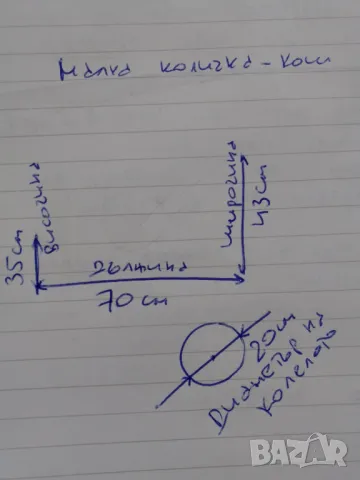 Малка количка - кош
височина
35 cm
дължина
70 cm
широчина
43 cm
20 cm
Диаметър на
колелото
BAZAR